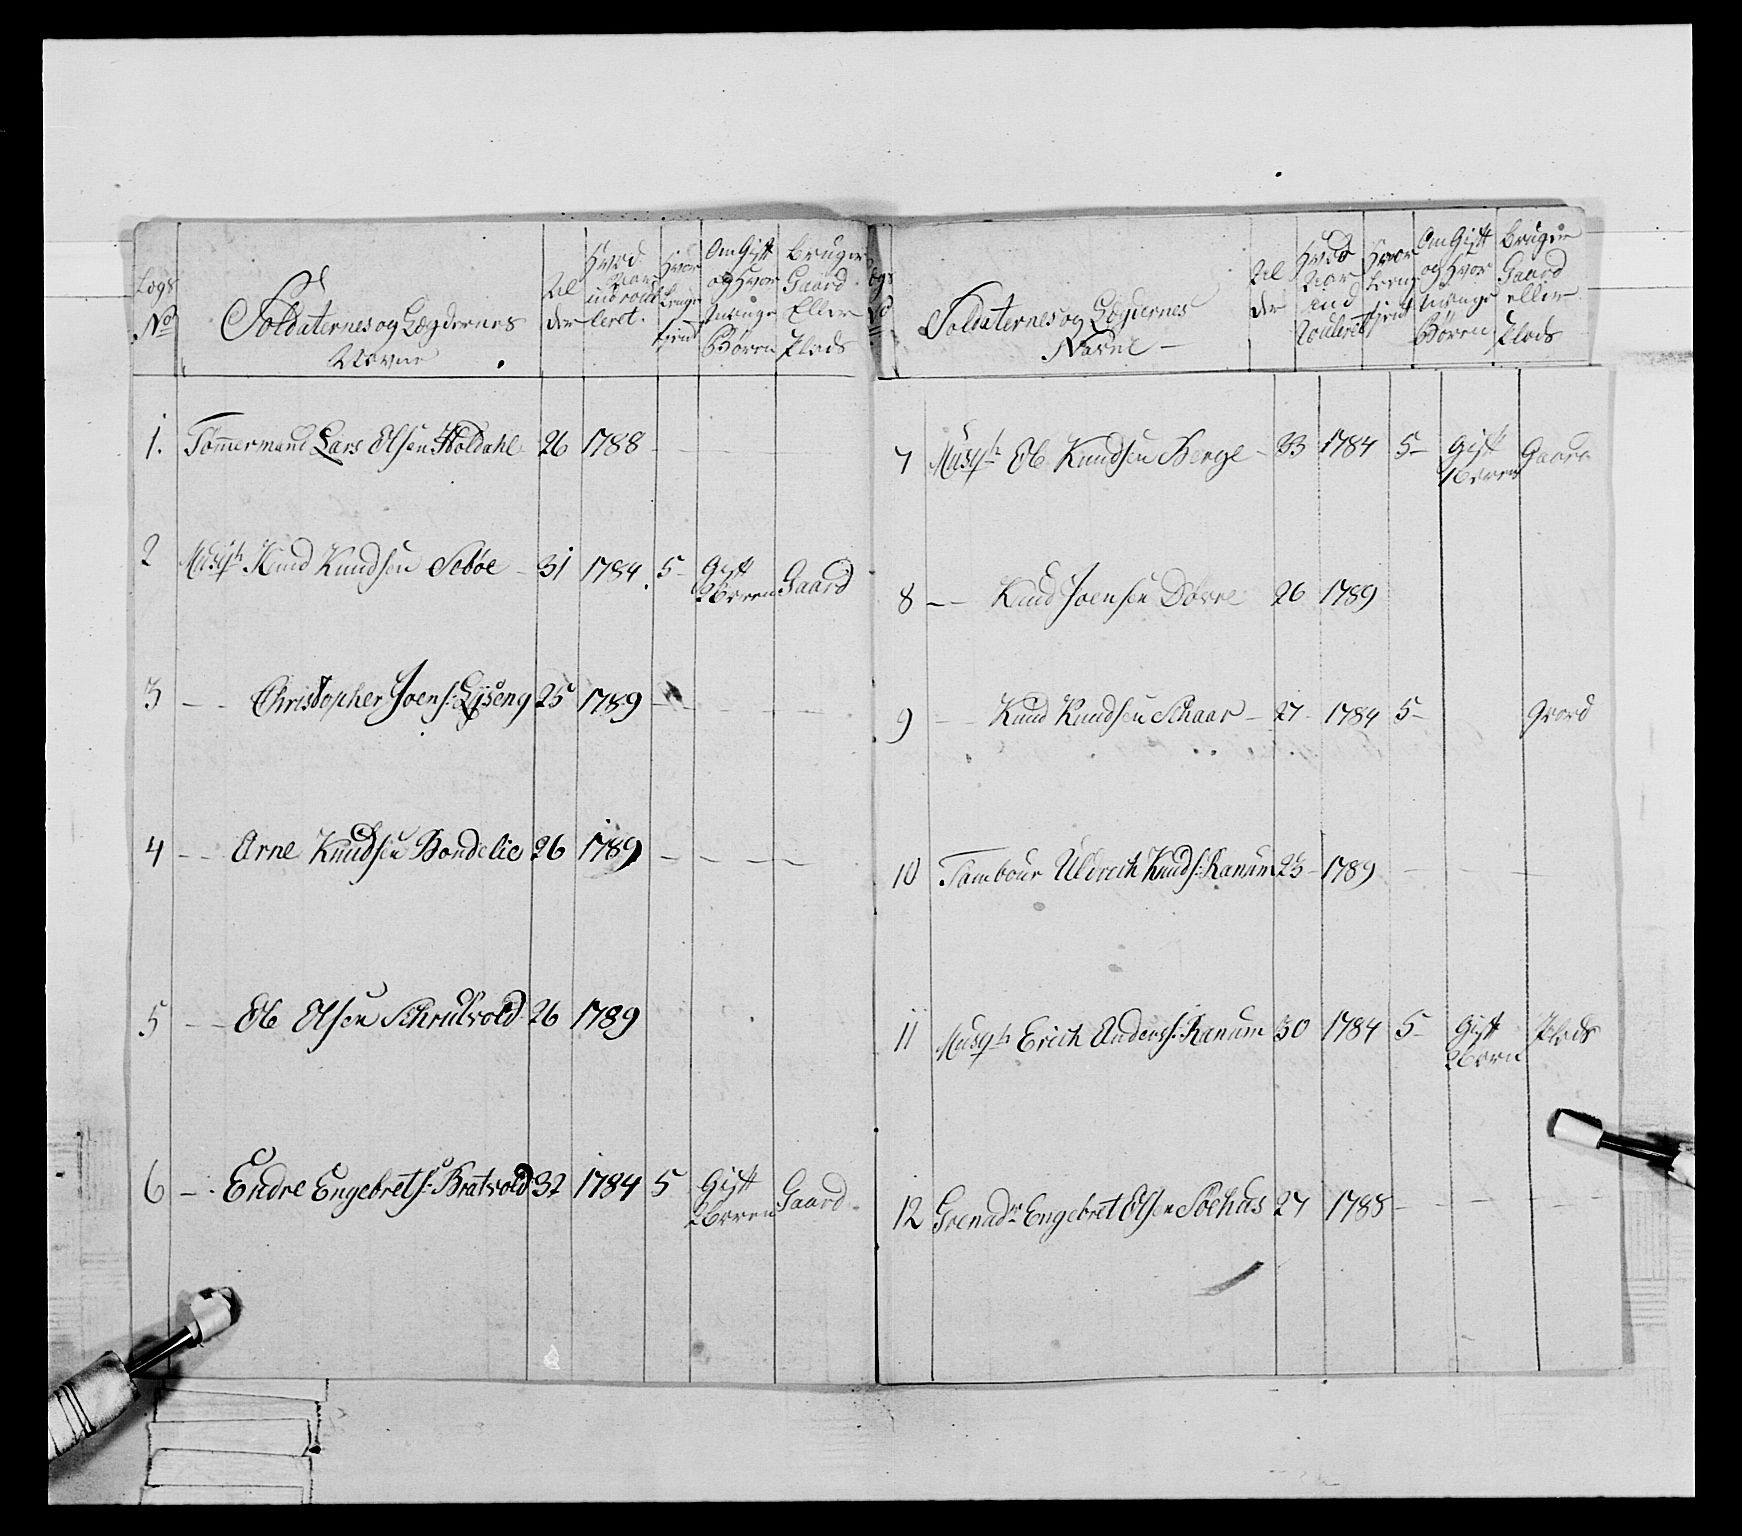 Lægs No
Soldaternes og Lægdernes Navne
Alder
Hvad Aar indroulleret.
Hvor Længe tjent
Om Gift og Hvor Mange Børen
Bruger Gaard Eller Plads
1. Tømmermand Lars Olsen Holdahl 26 1788 - - - -
2 Musqtr Knud Knudsen Sebøe - 31 1784 5 - Gift Gaard
2 børen
3 - - Christopher Joens: Lÿseng 25 1789 - - - -
4 - - Arne Knudsen Bondelie 26 1789 - - - -
5 - - Ole Olsen Schrulvold 26 1789
6 - - Endre Engebrets: Bratvold 32 1784 5 Gift Gaard -
2 børen
Soldaternes og Lægdernes Navne -
Alder
Hvad Aar ind Roulleret
Hvor Længe tjent
Om Gift og Hvor Mange Børen
Bruger Gaard eller Plads
7 Musqtr Ole Knudsen Berge - 33 1784 5 - Gift Gaard
1 børen
8 - - Knud Joensen Døvre 26 1789
9 - - Knud Knudsen Schaar - 27 - 1784 5 - Gaard
10 Tambour Uldrich Knuds: Ranum 25 - 1789 - - - -
11 Musqtr Erich Anders: Ranum 30 1784 5 - Gift Plads
2 børn
12 Grenadr Engebret Olsen Soehus 27 1788 - - - -